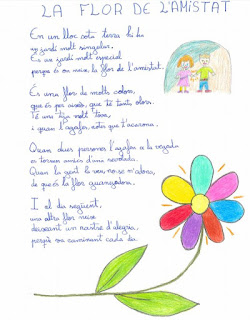 LA FLOR DE L'AMISTAT
En un lloc sota terra hi ha
un jardí molt singular,
És un jardí molt especial
perquè és on neix, la flor de l'amistat.
És una flor de molts colors,
que és per això, que té tants olors.
Té una tija molt tova,
i quan l'agafes, nota que t'acarona.
Quan dues persones l'agafen a la vegada
es tornen amics d'una vegada.
Quan la gent la veu no se n'adona,
de que és la flor guanyadora.
I el dia següent,
una altra flor neix
deixant un rastre d'alegria,
perquè va caminant cada dia.